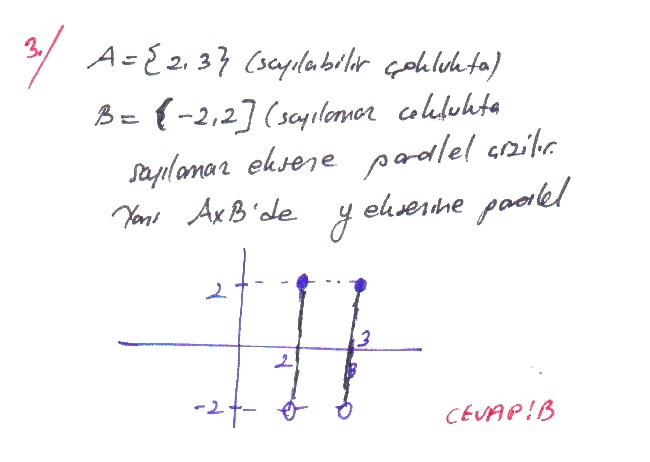 3./
A = {2, 3} (sayılabilir çoklukta)
B = (-2, 2] (sayılamaz coklukta
sayılamaz eksene paralel çizilir.
Yani AxB'de y eksenine paralel
2
3
2
3
-2
CEVAP: B